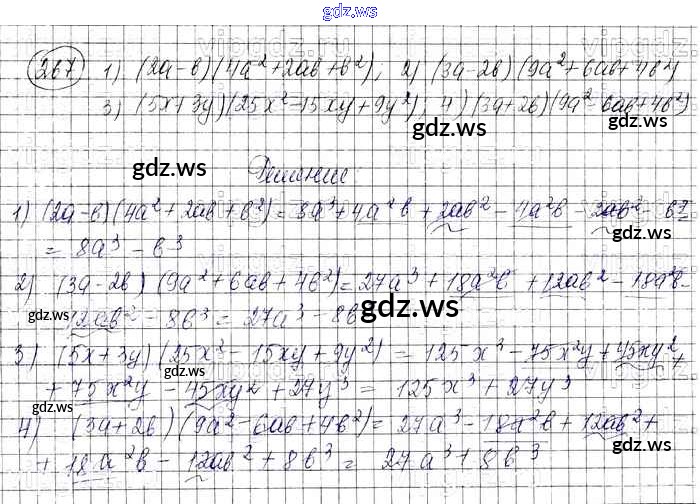 gdz.ws
267 1) (2a-b)(4a²+2ab+b²); 2) (3a-2b)(9a²+6ab+4b²)
3) (5x+3y)(25x²-15xy+9y²); 4) (3a+2b)(9a²-6ab+4b²)
gdz.ws
gdz.ws
gdz.ws
Решение:
1) (2a-b)(4a²+2ab+b²)=8a³+4a²b+2ab²-4a²b-2ab²-b³=
gdz.ws
gdz.ws
= 8a³-b³
2) (3a-2b)(9a²+6ab+4b²)=27a³+18a²b+12ab²-18a²b-
gdz.ws
gdz.ws
-12ab²-8b³=27a³-8b³
3) (5x+3y)(25x²-15xy+9y²)=125x³-75x²y+45xy²+
gdz.ws
+75x²y-45xy²+27y³=125x³+27y³
gdz.ws
4) (3a+2b)(9a²-6ab+4b²)=27a³-18a²b+12ab²+
gdz.ws
+18a²b-12ab²+8b³=27a³+8b³
gdz.ws